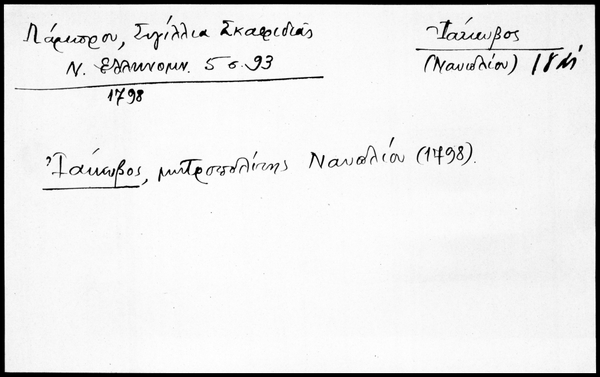 Λάμπρου, Σιγίλλια Σκαφιδιάς
Ν. Ελληνομν. 5 σ. 93
1798
Ἰάκωβος
(Ναυπλίου) 18
Ἰάκωβος, μητροπολίτης Ναυπλίου (1798).